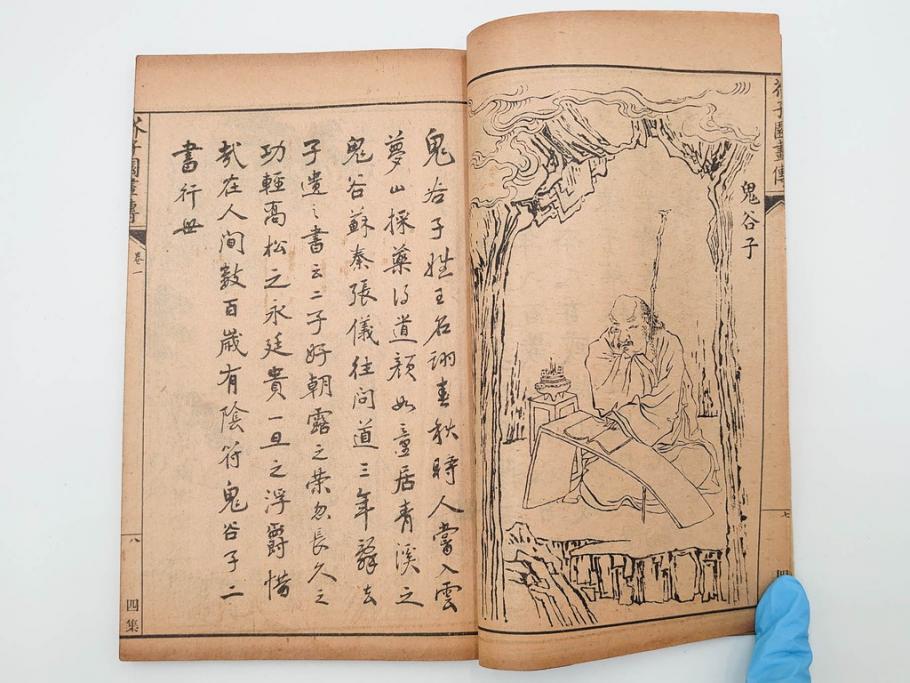 芥子園畫傳
鬼谷子
七
鬼谷子姓王名詡春秋時人嘗入雲
夢山採藥得道顏如童居青溪之
鬼谷蘇秦張儀往問道三年辭去
子遺之書云二子好朝露之榮忽長久之
功輕喬松之永延貴一旦之浮爵惜
哉在人間數百歲有陰符鬼谷子二
書行世
芥子園畫傳
卷一
八
四集